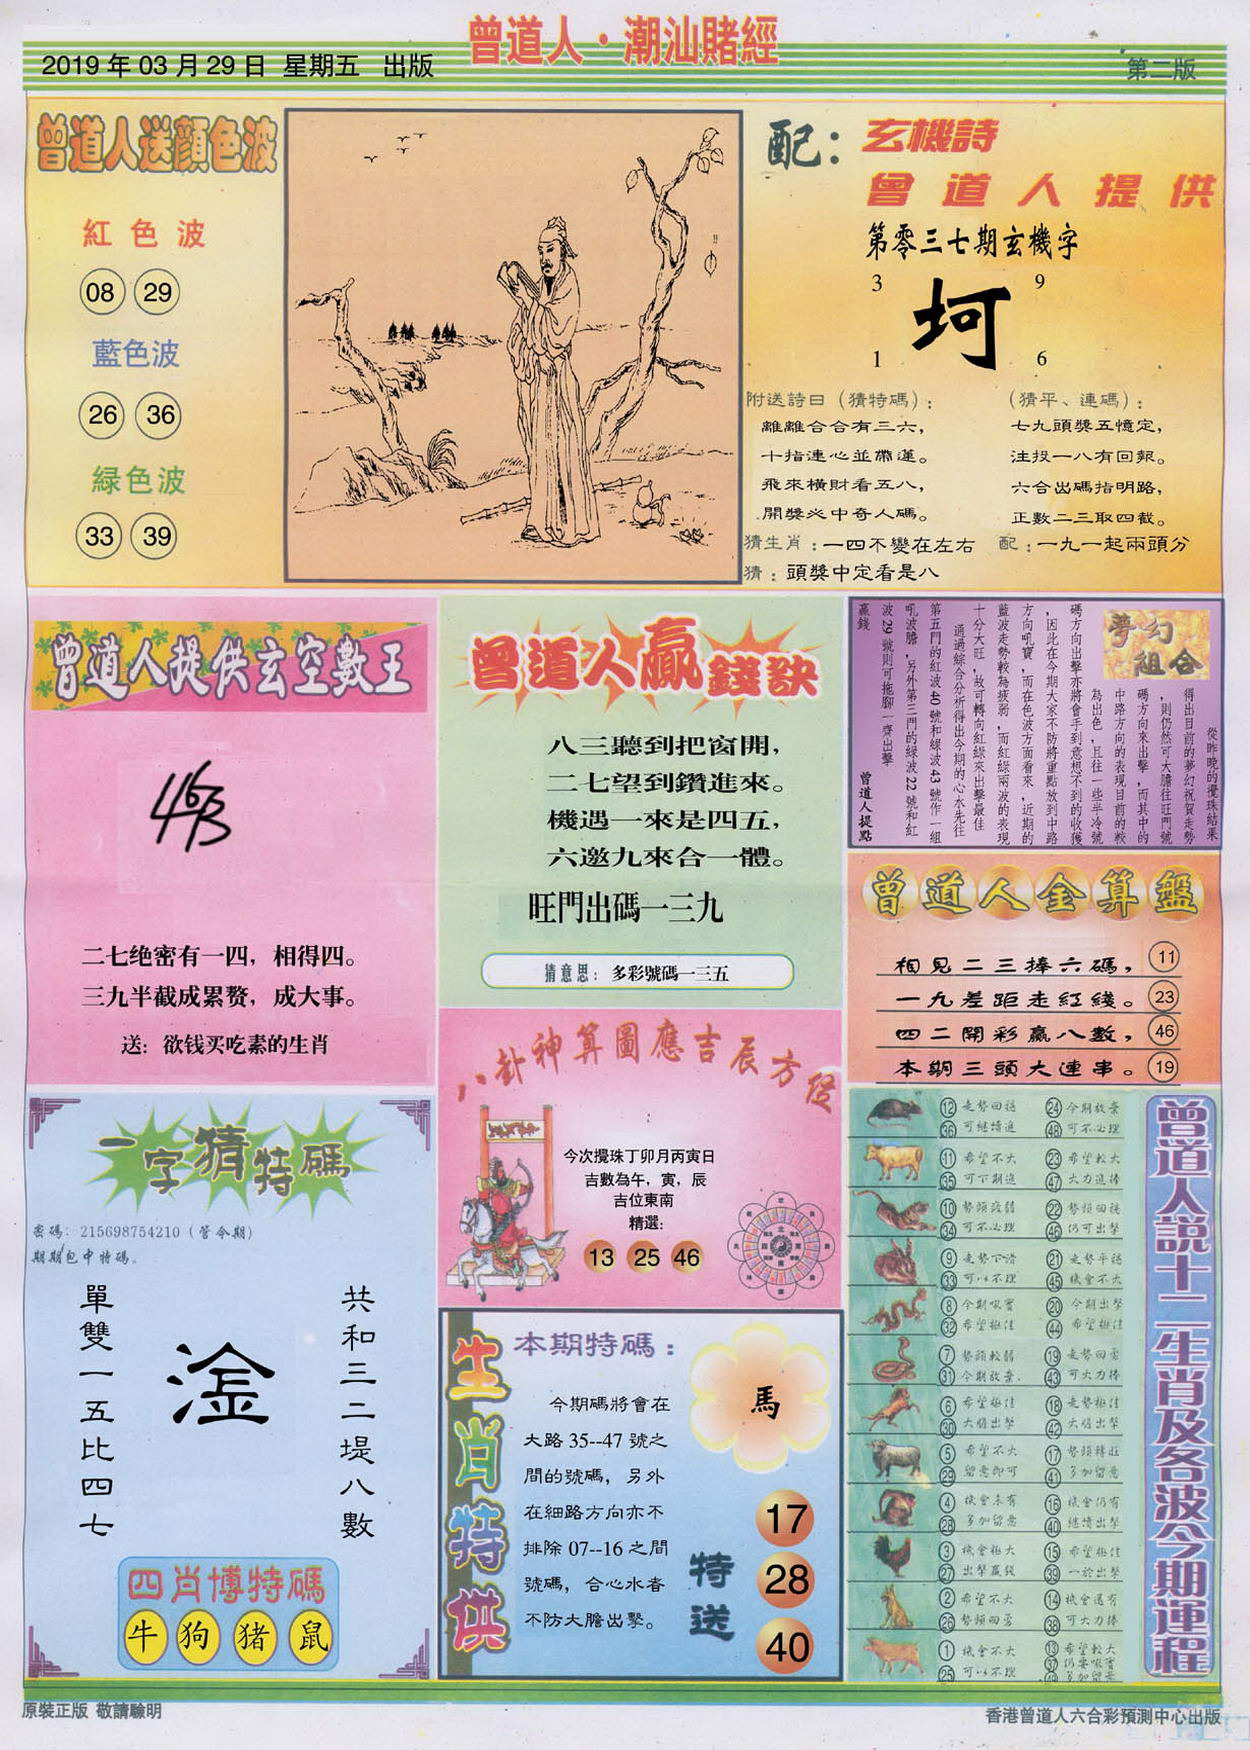 曾道人·潮汕賭經
2019年03月29日 星期五 出版
第二版
曾道人送顔色波
紅色波
08 29
藍色波
26 36
緑色波
33 39
配:
玄機詩
曾道人提供
第零三七期玄機字
3 9
坷
1 6
附送詩曰(猜特碼):
離離合合有三六,
十指連心並帶蓮。
飛來橫財看五八,
開獎必中奇人碼。
猜生肖:一四不變在左右
猜:頭獎中定看是八
(猜平、連碼):
七九頭獎五憶定,
注投一八有回報。
六合出碼指明路,
正數二三取四截。
配:一九一起兩頭分
曾道人提供玄空數王
463
二七绝密有一四,相得四。
三九半截成累赘,成大事。
送:欲钱买吃素的生肖
曾道人贏錢訣
八三聽到把窗開,
二七望到鑽進來。
機遇一來是四五,
六邀九來合一體。
旺門出碼一三九
猜意思:多彩號碼一三五
夢幻組合
從昨晚的攪珠結果
得出目前的夢幻祝賀走勢
,則仍然可大膽往旺門號
碼方向來出擊,而其中的
中路方向的表現目前的較
為出色,且往一些半冷號
碼方向出擊亦將會手到意想不到的收獲
,因此在今期大家不防將重點放到中路
方向吼寶,而在色波方面看來,近期的
藍波走勢較為疲弱,而紅緑兩波的表現
十分大旺,故可轉向紅緑來出擊最佳
通過綜合分析得出今期的心水先往
第五門的紅波40號和緑波43號作一組
吼波膽,另外第三門的緑波22號和紅
波29號則可拖腳一齊出擊
贏錢
曾道人提點
曾道人金算盤
相見二三捧六碼, 11
一九差距走紅綫。 23
四二開彩贏八數, 46
本期三頭大連串。 19
八卦神算圖應吉辰方位
今次攪珠丁卯月丙寅日
吉數為午,寅,辰
吉位東南
精選:
13 25 46
一字猜特碼
密碼:215698754210(管今期)
期期包中特碼。
單雙一五比四七
淦
共和三二堤八數
四肖博特碼
牛 狗 猪 鼠
生肖特供
本期特碼:
今期碼將會在
大路35--47號之
間的號碼,另外
在細路方向亦不
排除07--16之間
號碼,合心水者
不防大膽出擊。
馬
特送
17
28
40
曾道人說十二生肖及各波今期運程
12 走勢回穩 24 今期放棄
36 可繼續進 48 可不必理
11 希望不大 23 希望較大
35 可下期進 47 大力進捧
10 勢頭疲弱 22 勢頭回穩
34 可不必理 46 仍可出擊
9 走勢下滑 21 走勢平穩
33 可以不理 45 機會不大
8 今期吼寶 20 今期出擊
32 希望極佳 44 希望極佳
7 勢頭較弱 19 走勢回勇
31 今期放棄. 43 可大力捧
6 希望極佳 18 走勢極佳
30 大膽出擊 42 大膽出擊
5 希望不大 17 勢頭轉旺
29 留意即可 41 多加留意
4 機會未有 16 機會仍有
28 多加留意 40 繼續出擊
3 機會極大 15 希望極佳
27 出擊贏錢 39 一於出擊
2 希望不大 14 機會還有
26 勢頭回勇 38 可大力捧
1 機會不大 13 希望較大
25 可以不理 37 仍要吼寶
49 多加留意
原裝正版 敬請驗明
香港曾道人六合彩預測中心出版